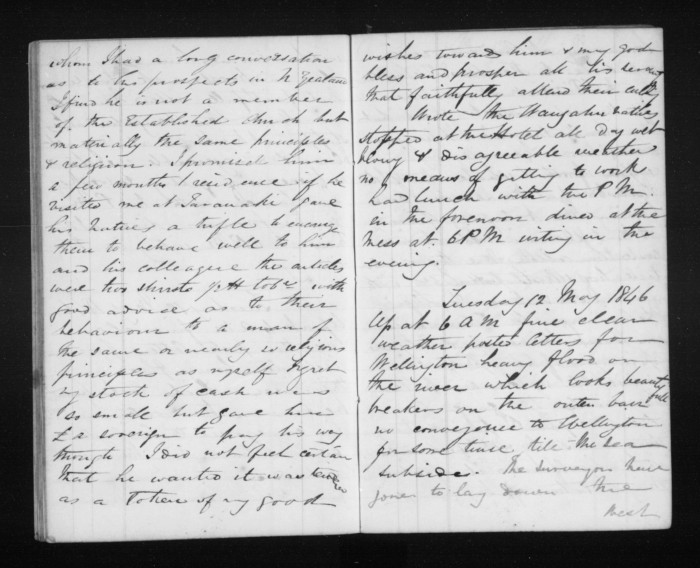 whom I had a long conversation
as to his prospects in N Zealand
I find he is not a member
of the Established Church but
materially the same principles
& religion. I promised him
a few months residence if he
visited me at Taranaki gave
his natives a trifle to
them to behave well to him
and his colleague the articles
were two shirts with
good advice as to their
behaviour to a man of
the same or nearly so religious
principles as myself regret
my stock of cash was
so small but gave him
£ a sovereign to pay his way
through I did not feel certain
that he wanted it was
as a token of my good
wishes toward him & may god
bless and prosper all his
that faithfully attend their
Wrote the
stopped at the Hotel all day wet
blowy & disagreeable weather
no means of getting to work
had lunch with the P.M.
in the forenoon dined at the
mess at 6 PM writing in the
evening.
Tuesday 12 May 1846
Up at 6 AM fine clear
weather posted letters for
Wellington heavy flood on
the river which looks beautiful
breakers on the outer bar
no conveyance to Wellington
for some time till the sea
subside. The surveyors have
gone to lay down the
West